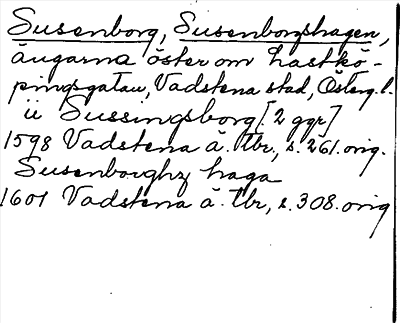 Susenborg, Susenborgshagen,
ängarna öster om Hästkö-
pingsgatan, Vadstena stad, Österg.l.
ü Sussingsborg [2 ggr]
1598 Vadstena ä. tbr, s. 261. orig.
Susenborghz haga
1601 Vadstena ä. tbr, s. 308. orig